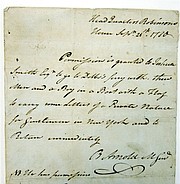 Head Quarters Robinson's
House Sepr. 21st 1780.
Permission is granted to Joshua
Smith Esqr. to go to Dobbs's ferry with three
Men and a Boy in a Boat with a Flag
to carry some Letters of a Private Nature
for Gentlemen in New York and to
Return immediately
B. Arnold M Genl
NB He has permission